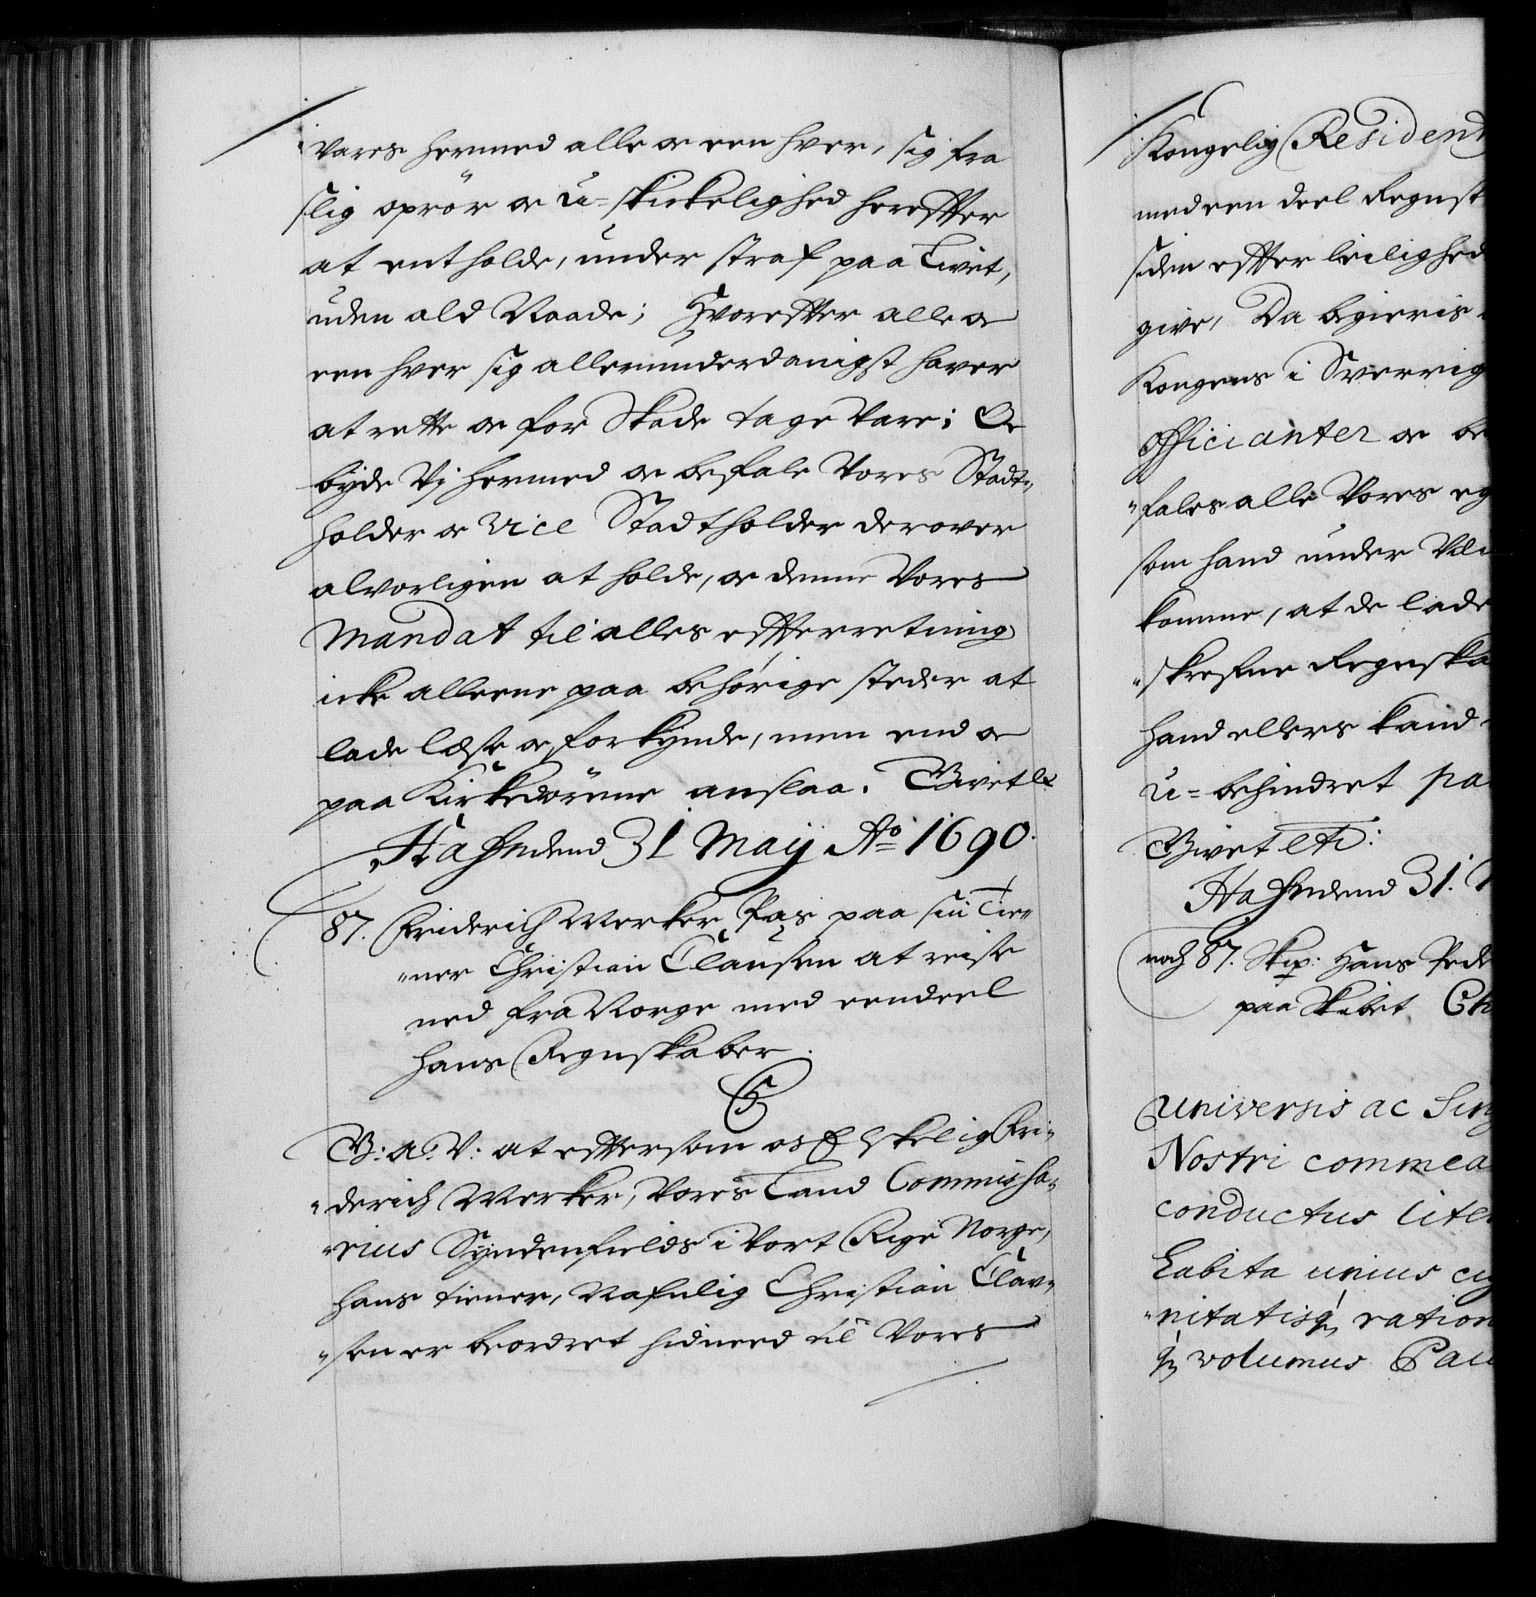 vares hermed alle oc een hver, sig fra
slig oprör oc u-skikelighed hereffter
at entholde, under straf paa Livet,
uden ald Naade; Hvoreffter alle oc
een hver sig allerunderdanigst haver
at rette oc for Skade tage Vare; Oc
byde Vj hermed oc befale Vores Stadt-
holder oc Vice Stadtholder derover
alvorligen at holde, oc denne Vores
Mandat til alles effterretning
icke alleene paa behörige steder at
lade læse oc forkynde, men end oc
paa Kirkedörene anslaa. Givet etc
Hafn den 31 Maij Ao 1690.
87. Friderich Merker Pas paa sin Tie-
ner Christian Clausen at reise
ned fra Norge med eendeel
hans Regnskaber.
C5
G: a: V: at eftersom os Elskelig Fri-
derich Merker, Vores Land Commissa-
rius Syndenfields i Vort Rige Norge,
hans tiener, Nafnlig Christian Clau-
sen er beordret hidneed til Vores
Kongelig Resident
med een deel Regnsk
siden effter leilighed
give, Da begieris
Kongens i Sverrig
Officianter oc be
fales alle Vores eg
som hand under Veie
komme, at de lade
skrefne Regnska
hand ellers kand
u-behindret pa
Givet etc:
Hafn den 31. M
noch 87. Skip: Hans Pede
paa Skibet Ch
Universis ac Sing
Nostri commea
conductus lite
habita unius cuj
nitatisq ration
q volumus Pau